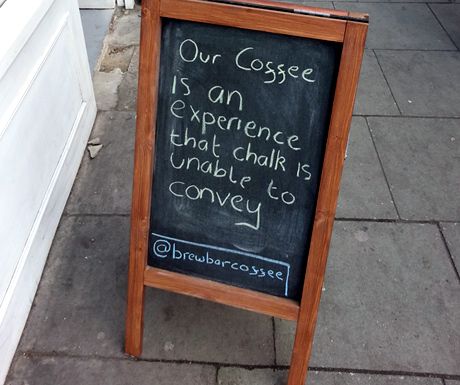 Our Coffee
is an
experience
that chalk is
unable to
convey
@brewbarcoffee